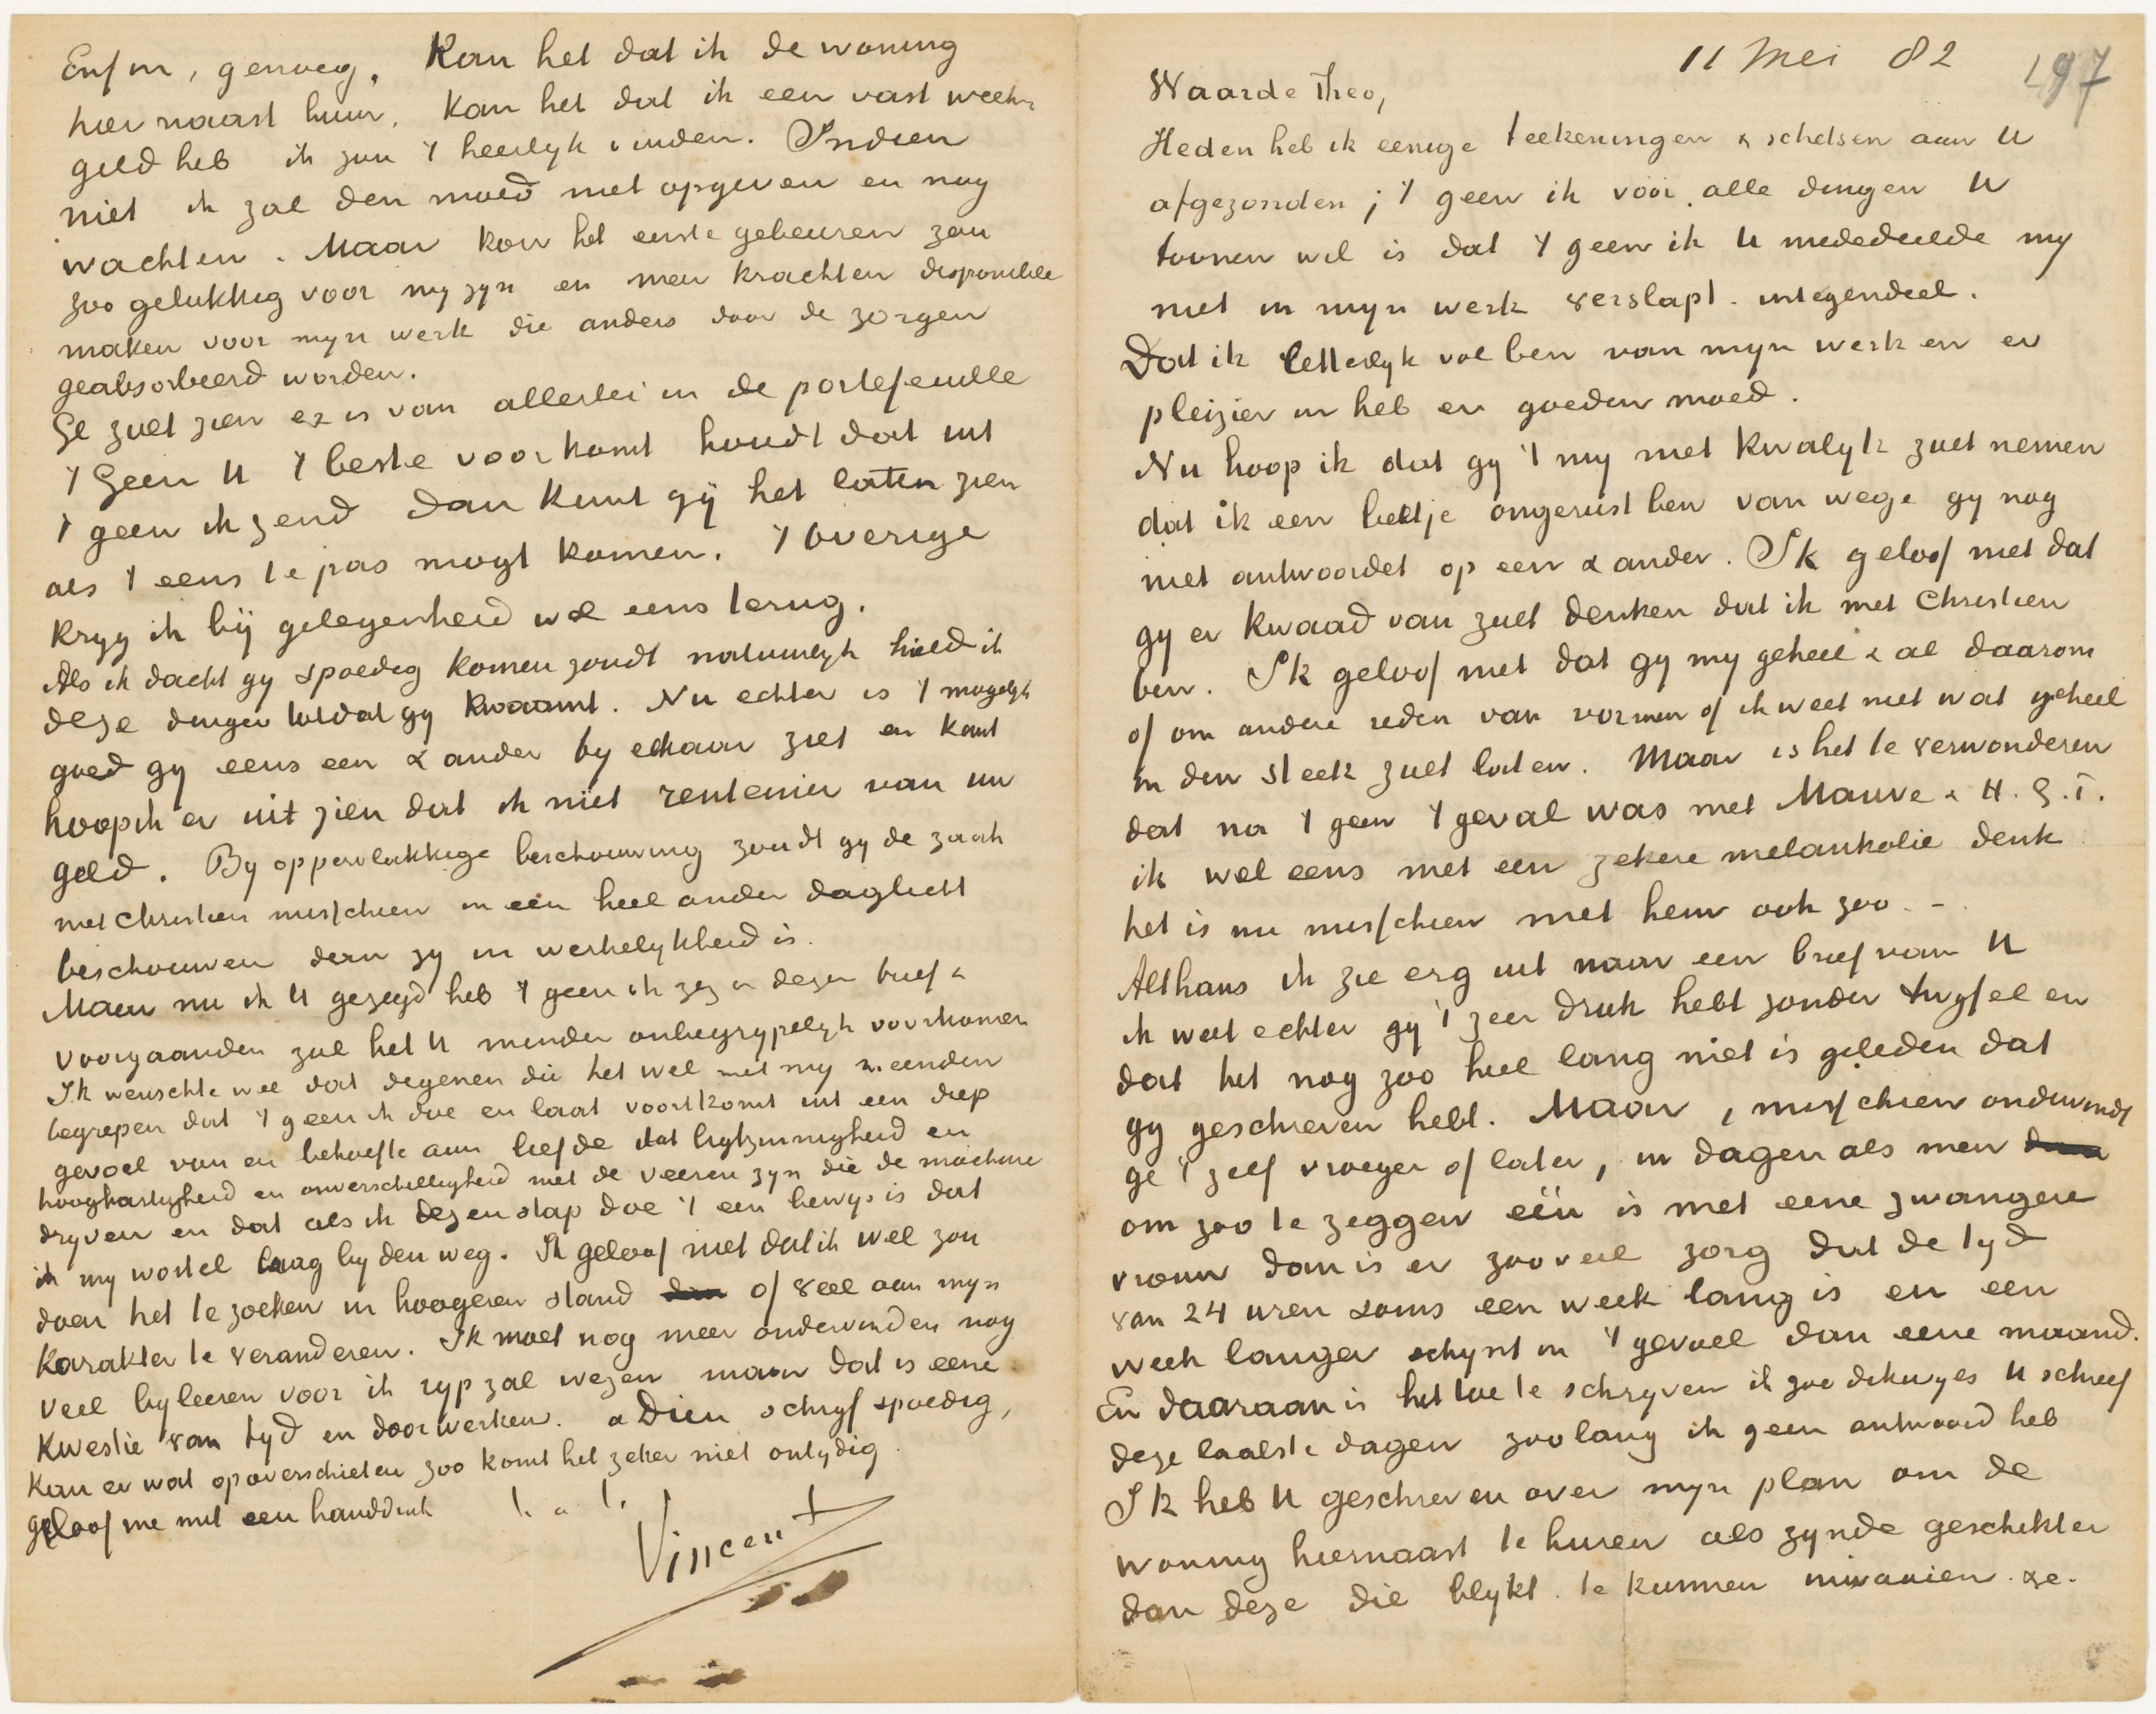 11 Mei 82
197
Waarde Theo,
Heden heb ik eenige teekeningen & schetsen aan U
afgezonden; 't geen ik vóór alle dingen U
toonen wil is dat 't geen ik U mededeelde my
niet in myn werk verslapt - integendeel.
Dat ik letterlyk vol ben van myn werk en er
pleizier in heb en goeden moed.
Nu hoop ik dat gy 't my niet kwalyk zult nemen
dat ik een beetje ongerust ben van wege gy nog
niet antwoordet op een & ander. Ik geloof niet dat
gy er kwaad van zult denken dat ik met Christien
ben. Ik geloof niet dat gy my geheel & al daarom
of om andere reden van vormen of ik weet niet wat geheel
in den steek zult laten. Maar is het te verwonderen
dat na 't geen 't geval was met Mauve & H.G.T.
ik wel eens met een zekere melankolie denk
het is nu misschien met hem ook zoo. -
Althans ik zie erg uit naar een brief van U
ik weet echter gy 't zeer druk hebt zonder twyfel en
dat het nog zoo heel lang niet is geleden dat
gy geschreven hebt. Maar, misschien ondervindt
ge 't zelf vroeger of later, in dagen als men
om zoo te zeggen één is met eene zwangere
vrouw dan is er zooveel zorg dat de tyd
van 24 uren soms een week lang is en een
week langer schynt in 't gevoel dan eene maand.
En daaraan is het toe te schryven ik zoo dikwyls U schreef
deze laatste dagen zoolang ik geen antwoord heb
Ik heb U geschreven over myn plan om de
woning hiernaast te huren als zynde geschikter
dan deze die blykt te kunnen inwaaien &c.
Enfin, genoeg. Kan het dat ik de woning
hiernaast huur, kan het dat ik een vast week-
geld heb ik zou 't heerlyk vinden. Indien
niet ik zal den moed niet opgeven en nog
wachten. Maar kon het eerste gebeuren zou
zoo gelukkig voor my zyn en myn krachten disponibele
maken voor myn werk die anders door de zorgen
geabsorbeerd worden.
Ge zult zien er is van allerlei in de portefeuille
't Geen U 't beste voorkomt houdt dat uit
't geen ik zend dan kunt gÿ het laten zien
als 't eens te pas mogt komen. 't Overige
kryg ik bÿ gelegenheid wel eens terug.
Als ik dacht gy spoedig komen zoudt natuurlyk hield ik
deze dingen totdat gy kwaamt. Nu echter is 't mogelyk
goed gy eens een & ander by elkaar ziet en kunt
hoop ik er uit zien dat ik niet rentenier van uw
geld. By oppervlakkige beschouwing zoudt gy de zaak
met Christien misschien in een heel ander daglicht
beschouwen dan zy in werkelykheid is.
Maar nu ik U gezegd heb 't geen ik zeg in dezen brief &
voorgaanden zal het U minder onbegrypelyk voorkomen
Ik wenschte wel dat degenen die het wel met my meenden
begrepen dat 't geen ik doe en laat voortkomt uit een diep
gevoel van en behoefte aan liefde dat ligtzinnigheid en
hooghartigheid en onverschilligheid niet de veeren zyn die de machine
dryven en dat als ik dezen stap doe 't een bewys is dat
ik my wortel laag by den weg. Ik geloof niet dat ik wel zou
doen het te zoeken in hoogeren stand of veel aan myn
karakter te veranderen. Ik moet nog meer ondervinden nog
veel byleeren voor ik ryp zal wezen maar dat is eene
kwestie van tyd en doorwerken. adieu schryf spoedig,
kan er wat op overschieten zoo komt het zeker niet ontydig
geloof me met een handdruk t. a t.
Vincent